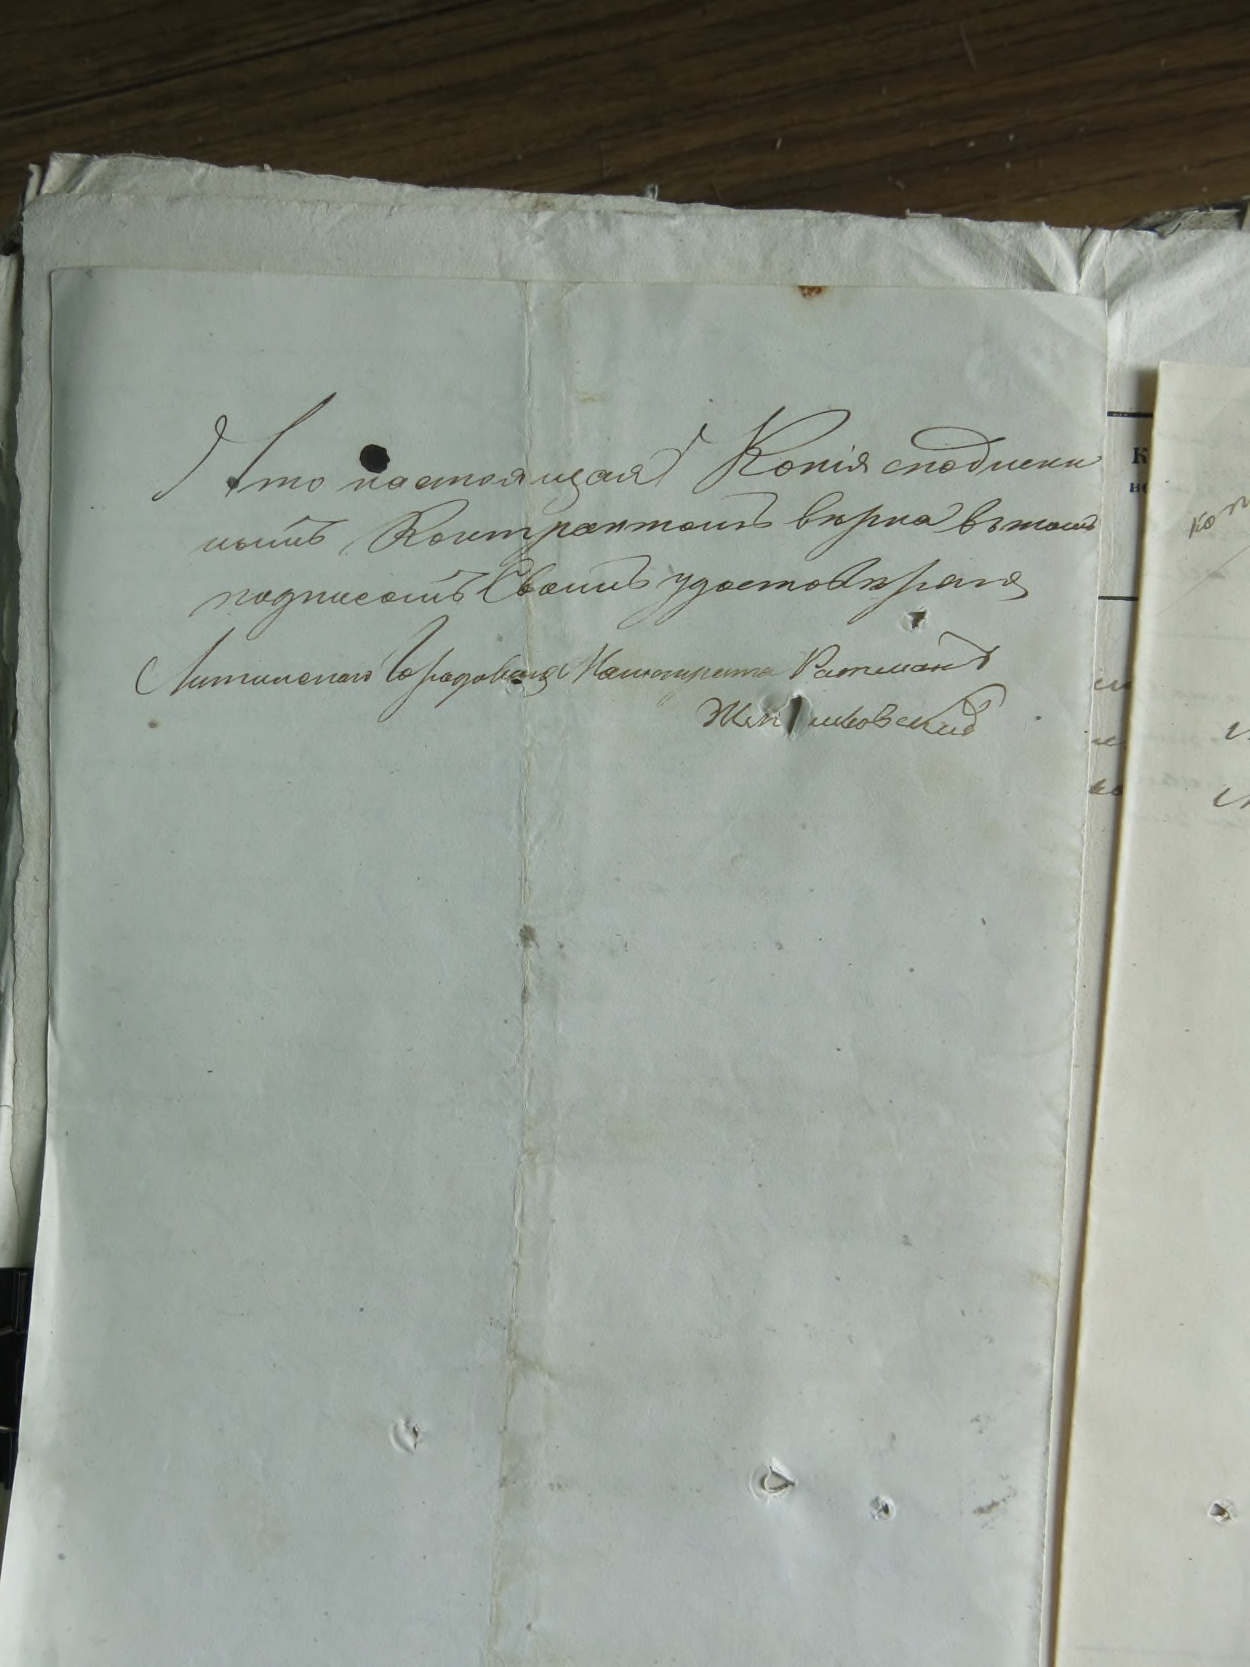 Что настоящая Копія сподлени
нымъ Контрактомъ вѣрна въ томъ
подписомъ Своимъ удостовѣряя
Литинского Городоваго Магистрата Ратманъ
ко